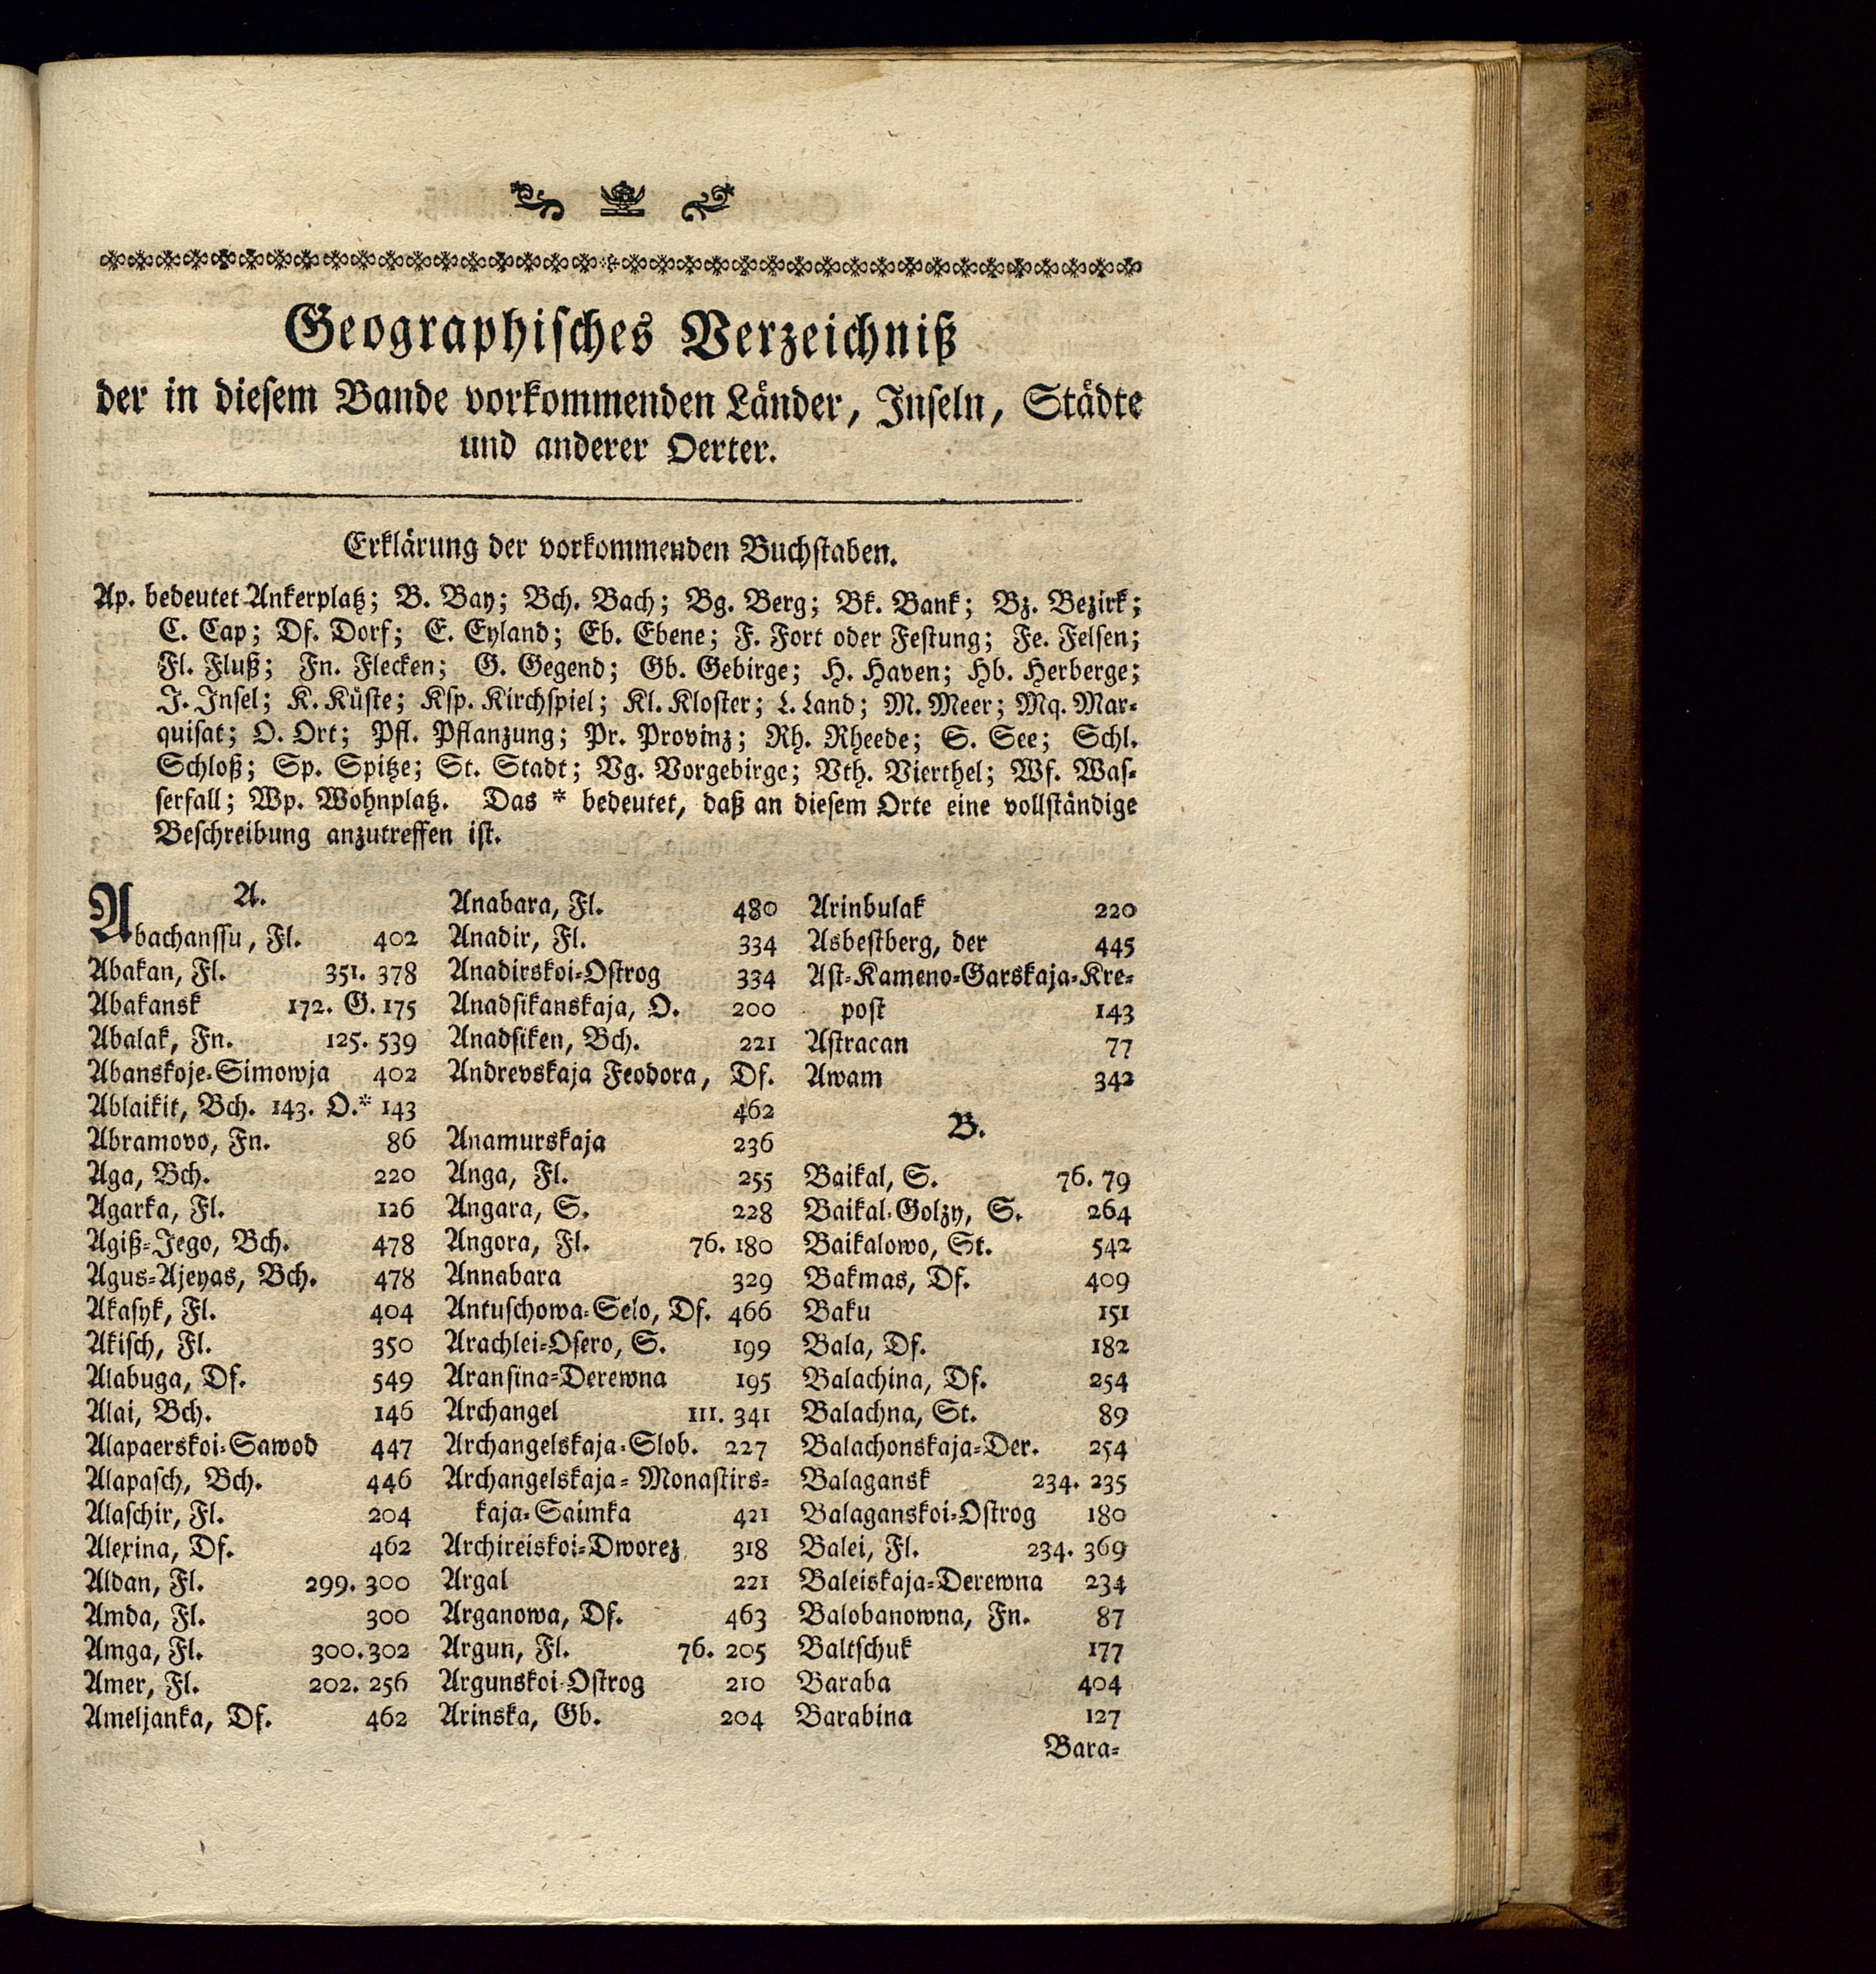 Geographisches Verzeichniß
der in diesem Bande vorkommenden Länder, Inseln, Städte
und anderer Oerter.
Erklärung der vorkommenden Buchstaben.
Ap. bedeutet Ankerplatz; B. Bay; Bch. Bach; Bg. Berg; Bk. Bank; Bz. Bezirk;
C. Cap; Df. Dorf; E. Eyland; Eb. Ebene; F. Fort oder Festung; Fe. Felsen;
Fl. Fluß; Fn. Flecken; G. Gegend; Gb. Gebirge; H. Haven; Hb. Herberge;
J. Insel; K. Küste; Ksp. Kirchspiel; Kl. Kloster; L. Land; M. Meer; Mq. Mar-
quisat; O. Ort; Pfl. Pflanzung; Pr. Provinz; Rh. Rheede; S. See; Schl.
Schloß; Sp. Spitze; St. Stadt; Vg. Vorgebirge; Vth. Vierthel; Wf. Was-
serfall; Wp. Wohnplatz. Das * bedeutet, daß an diesem Orte eine vollständige
Beschreibung anzutreffen ist.
A.
Abachanssu, Fl. 402
Abakan, Fl. 351. 378
Abakansk 172. G. 175
Abalak, Fn. 125. 539
Abanskoje-Simowja 402
Ablaikit, Bch. 143. O.* 143
Abramovo, Fn. 86
Aga, Bch. 220
Agarka, Fl. 126
Agiß-Jego, Bch. 478
Agus-Ajeyas, Bch. 478
Akasyk, Fl. 404
Akisch, Fl. 350
Alabuga, Df. 549
Alai, Bch. 146
Alapaerskoi-Sawod 447
Alapasch, Bch. 446
Alaschir, Fl. 204
Alexina, Df. 462
Aldan, Fl. 299. 300
Amda, Fl. 300
Amga, Fl. 300. 302
Amer, Fl. 202. 256
Ameljanka, Df. 462
Anabara, Fl. 480
Anadir, Fl. 334
Anadirskoi-Ostrog 334
Anadsikanskaja, O. 200
Anadsiken, Bch. 221
Andrevskaja Feodora, Df.
462
Anamurskaja 236
Anga, Fl. 255
Angara, S. 228
Angora, Fl. 76. 180
Annabara 329
Antuschowa-Selo, Df. 466
Arachlei-Osero, S. 199
Aransina-Derewna 195
Archangel 111. 341
Archangelskaja-Slob. 227
Archangelskaja-Monastirs-
kaja-Saimka 421
Archireiskoi-Dworez 318
Argal 221
Arganowa, Df. 463
Argun, Fl. 76. 205
Argunskoi-Ostrog 210
Arinska, Gb. 204
Arinbulak 220
Asbestberg, der 445
Ast-Kameno-Garskaja-Kre-
post 143
Astracan 77
Awam 342
B.
Baikal, S. 76. 79
Baikal-Golzy, S. 264
Baikalowo, St. 542
Bakmas, Df. 409
Baku 151
Bala, Df. 182
Balachina, Df. 254
Balachna, St. 89
Balachonskaja-Der. 254
Balagansk 234. 235
Balaganskoi-Ostrog 180
Balei, Fl. 234. 369
Baleiskaja-Derewna 234
Balobanowna, Fn. 87
Baltschuk 177
Baraba 404
Barabina 127
Bara-